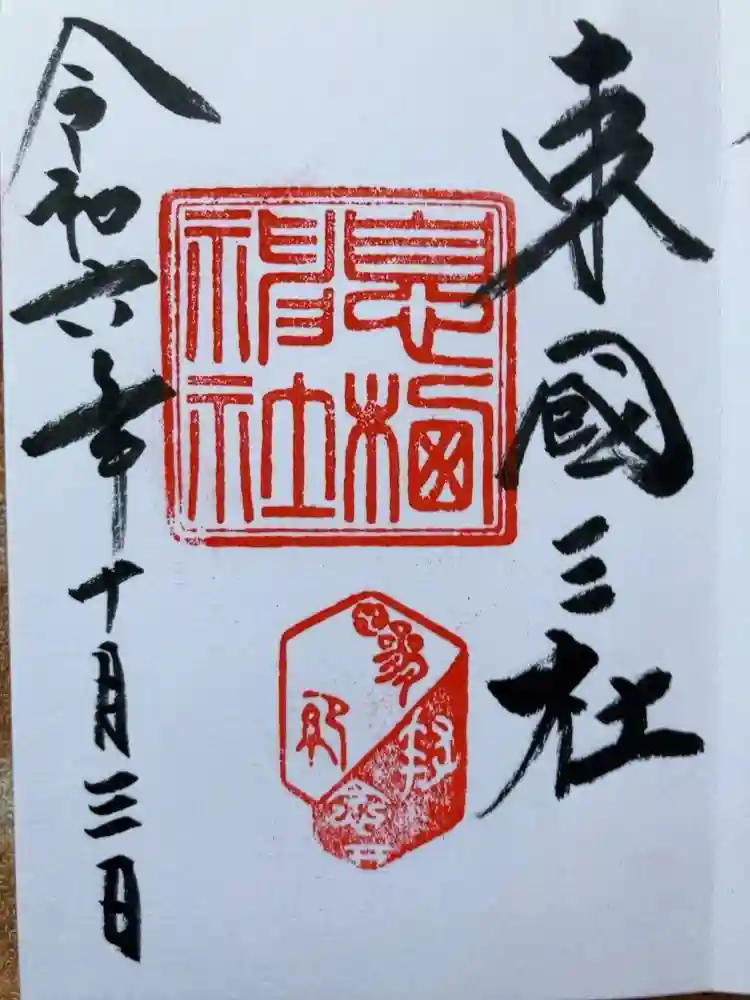 東國三社
息栖神社
令和六年十月三日